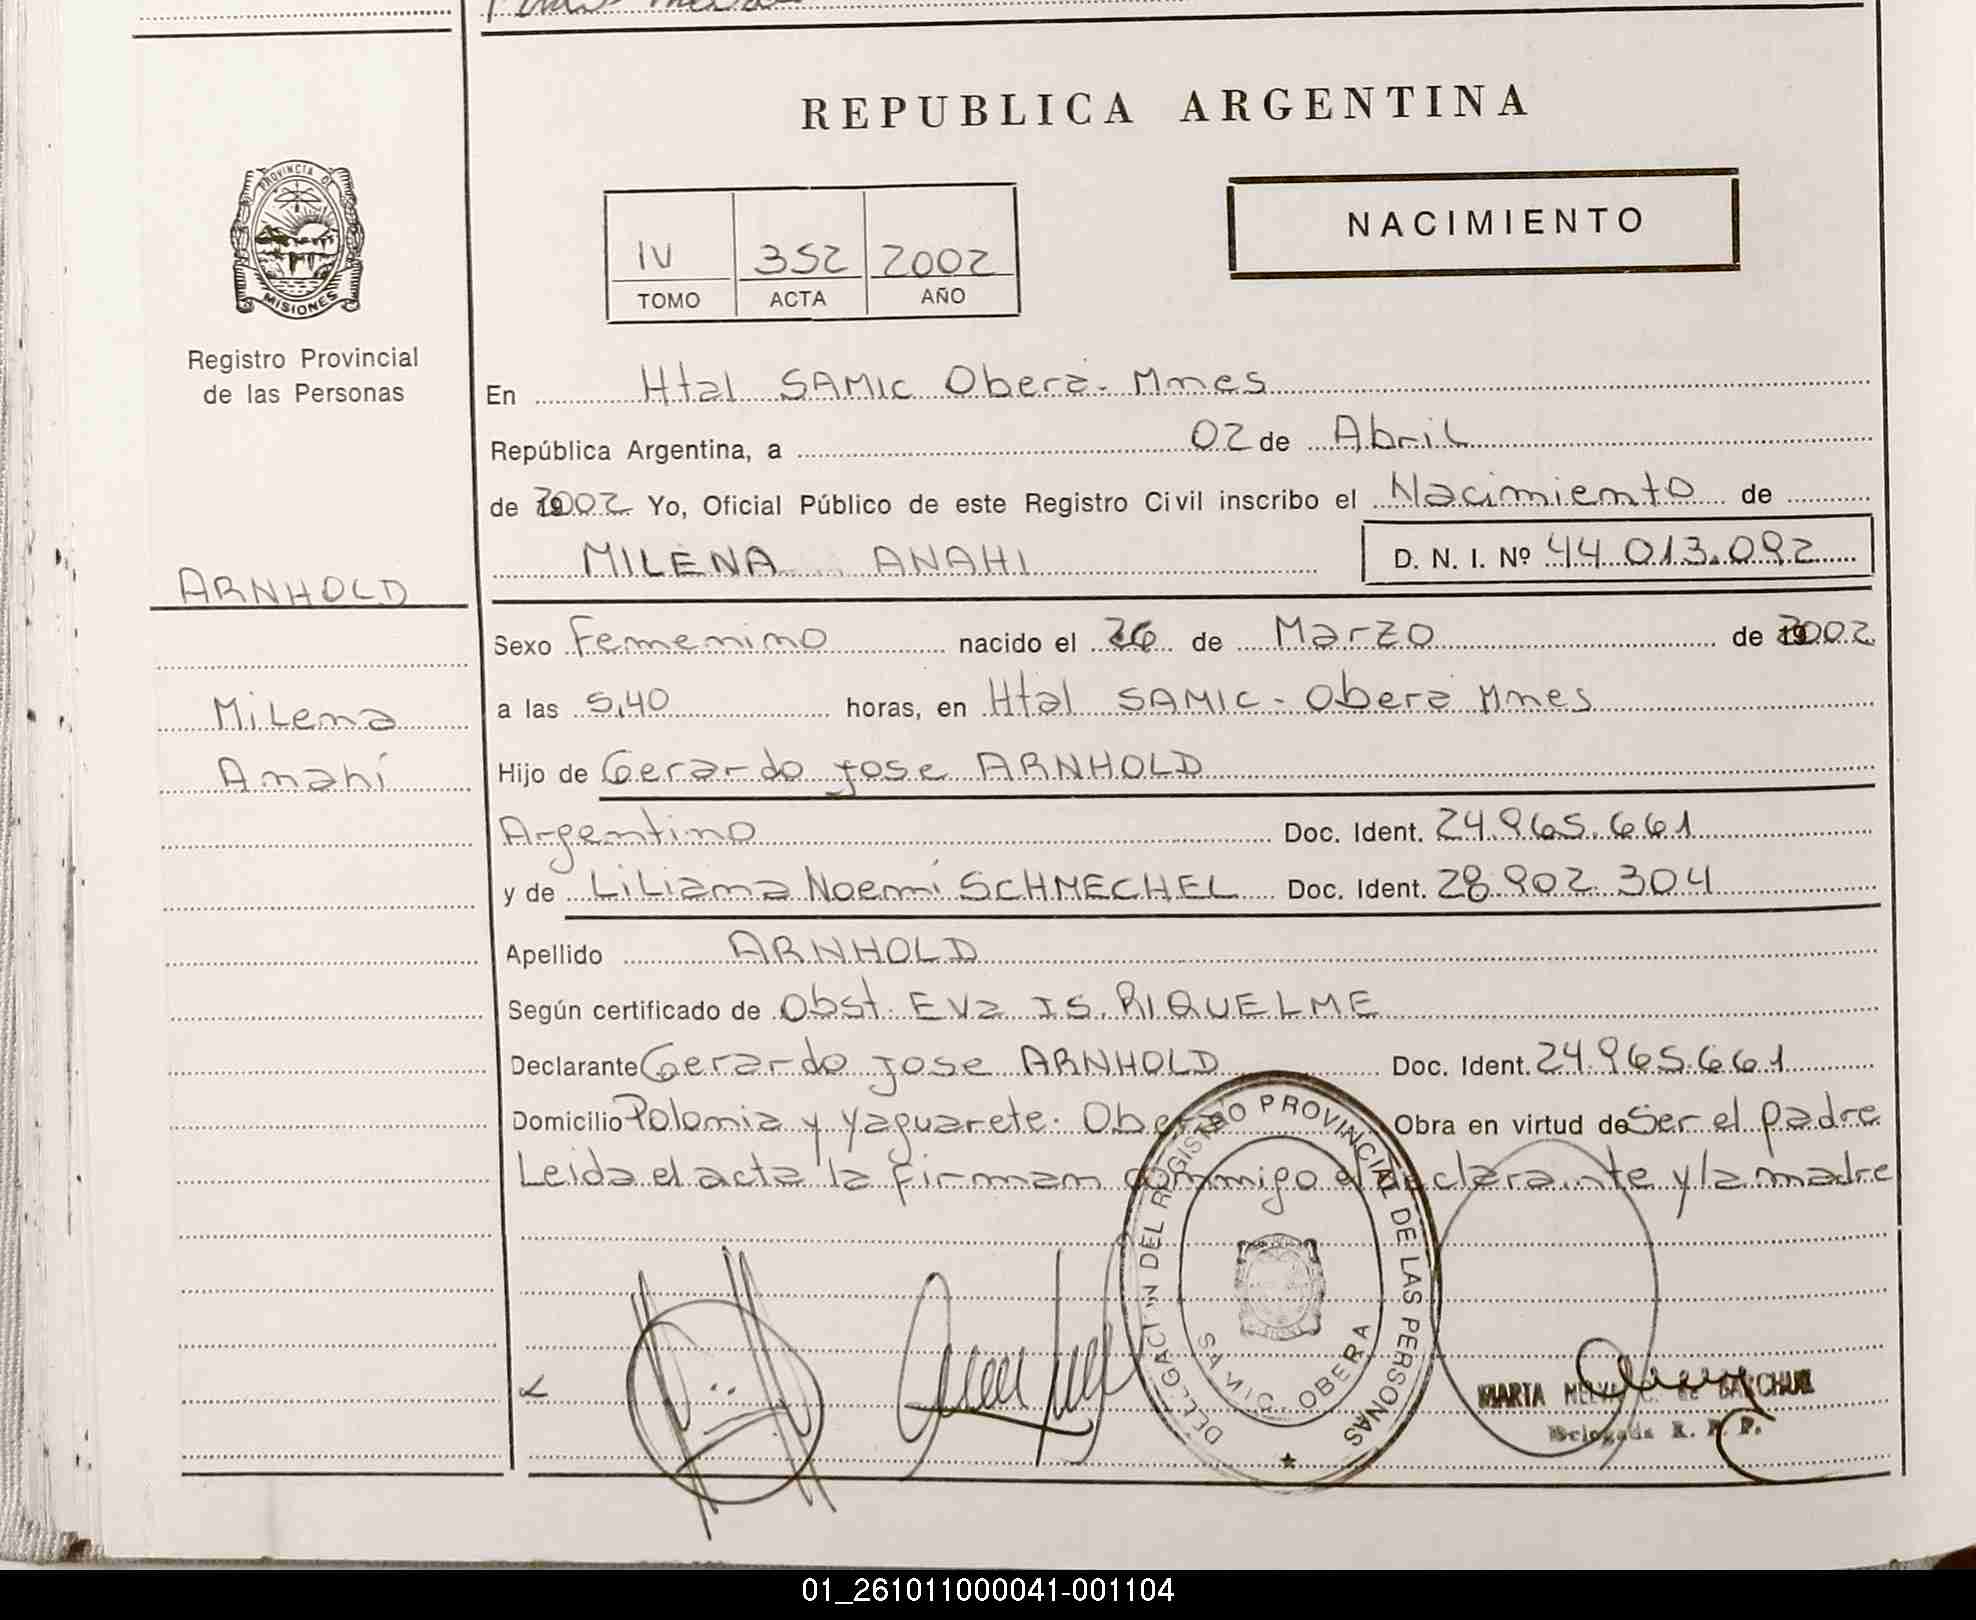 REPUBLICA ARGENTINA
PROVINCIA DE
MISIONES
Registro Provincial
de las Personas
IV 352 2002
TOMO ACTA AÑO
NACIMIENTO
En Htal SAMIC Oberá - Mnes
República Argentina, a 02 de Abril
de 2002 Yo, Oficial Público de este Registro Civil inscribo el Nacimiento de
MILENA ANAHI D. N. I. Nº 44.013.092
ARNHOLD
Milena
Anahí
Sexo Femenino nacido el 26 de Marzo de 2002
a las 5,40 horas, en Htal SAMIC - Oberá Mnes
Hijo de Gerardo Jose ARNHOLD
Argentino Doc. Ident. 24.965.661
y de Liliana Noemí SCHMECHEL Doc. Ident. 28.902.304
Apellido ARNHOLD
Según certificado de Obst. Eva IS. RIQUELME
Declarante Gerardo Jose ARNHOLD Doc. Ident. 24.965.661
Domicilio Polonia y Yaguarete. Oberá Obra en virtud de Ser el padre
Leida el acta la firman conmigo el declarante y la madre
DELEGACI N DEL REGISTRO PROVINCIAL DE LAS PERSONAS
SAMIC OBERA
MARTA
Delegada R. P. P.
01_261011000041-001104